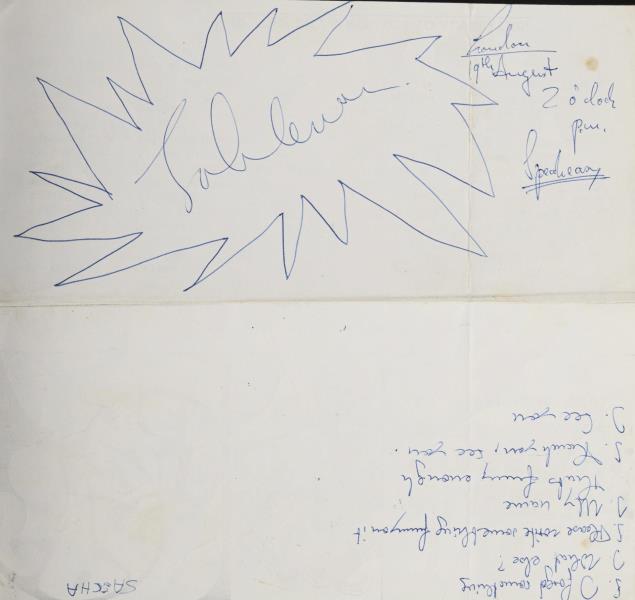 London
19th August
2 o'clock
p.m.
Speakeasy
SASCHA
S. I forgot something
J. What else?
S. Please write something funny on it
J. My name
thats funny enough
S. Thank you, see you.
J. See you